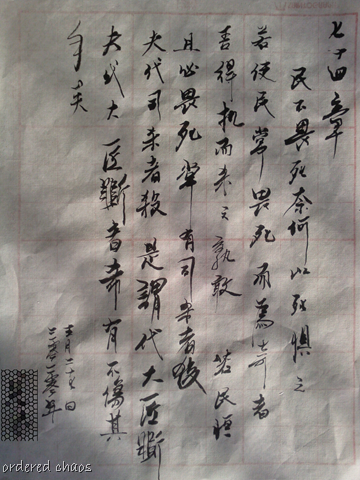 七十四章
民不畏死奈何以死惧之
若使民常畏死而为奇者
吾得执而杀之孰敢 若民恒
且必畏死常有司杀者殺
夫代司杀者殺 是謂代大匠斷
夫代大匠斷者希有不傷其
手矣
五月二十七日
二零一零年
ordered chaos